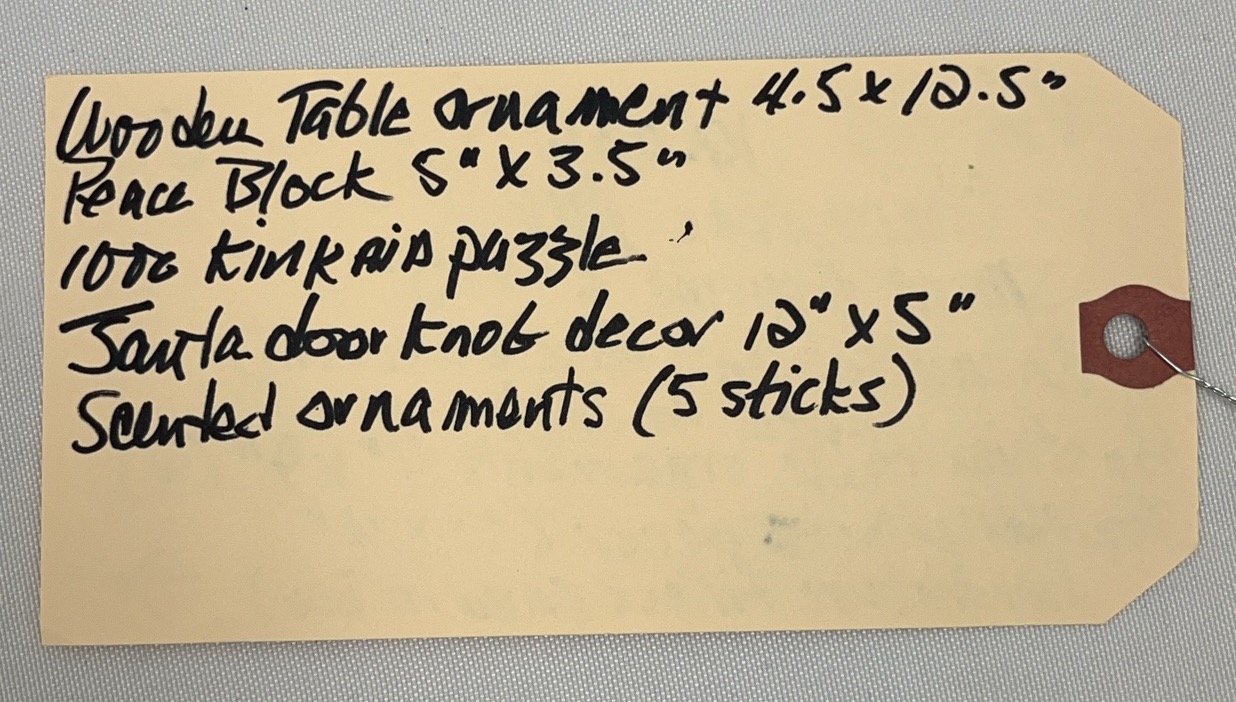 Wooden Table ornament 4.5 x 12.5"
Peace Block 5" X 3.5"
1000 KinkAiD puzzle
Santa door knob decor 12" x 5"
Scented ornaments (5 sticks)